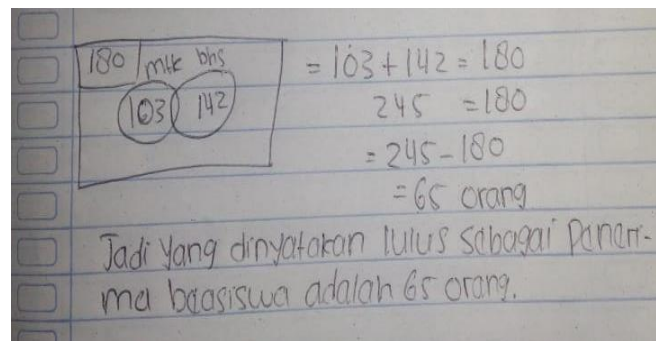 180 mtk bhs
103 142
= 103 + 142 = 180
245 = 180
= 245 - 180
= 65 orang
Jadi yang dinyatakan lulus sebagai peneri-
ma baasiswa adalah 65 orang.